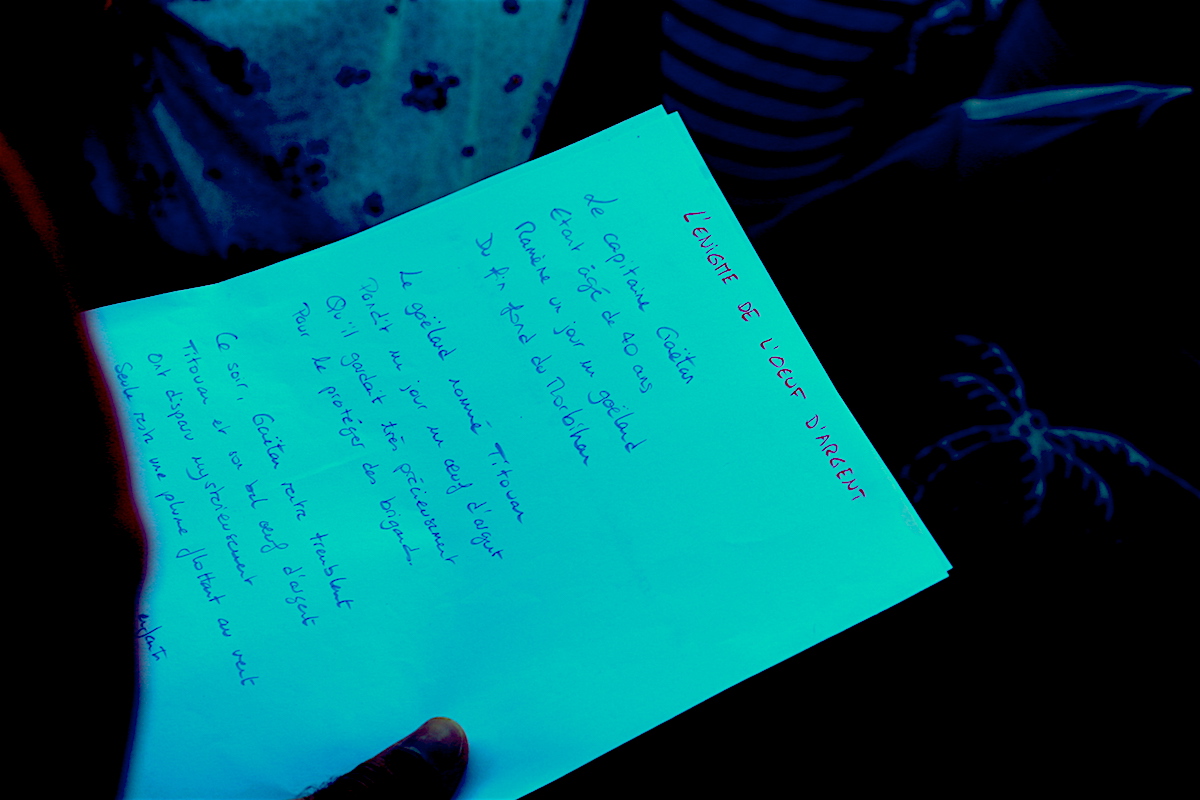 L'ENIGME DE L'OEUF D'ARGENT
Le capitaine Gaëtan
Etant âgé de 40 ans
Ramène un jour un goëland
Du fin fond du Morbihan
Le goëland nommé Titouan
Pondit un jour un oeuf d'argent
Qu'il gardait très précieusement
Pour le protéger des brigands.
Ce soir, Gaëtan rentre tremblant
Titouan et son bel oeuf d'argent
Ont disparu mystérieusement
Seule reste une plume flottant au vent
enfants